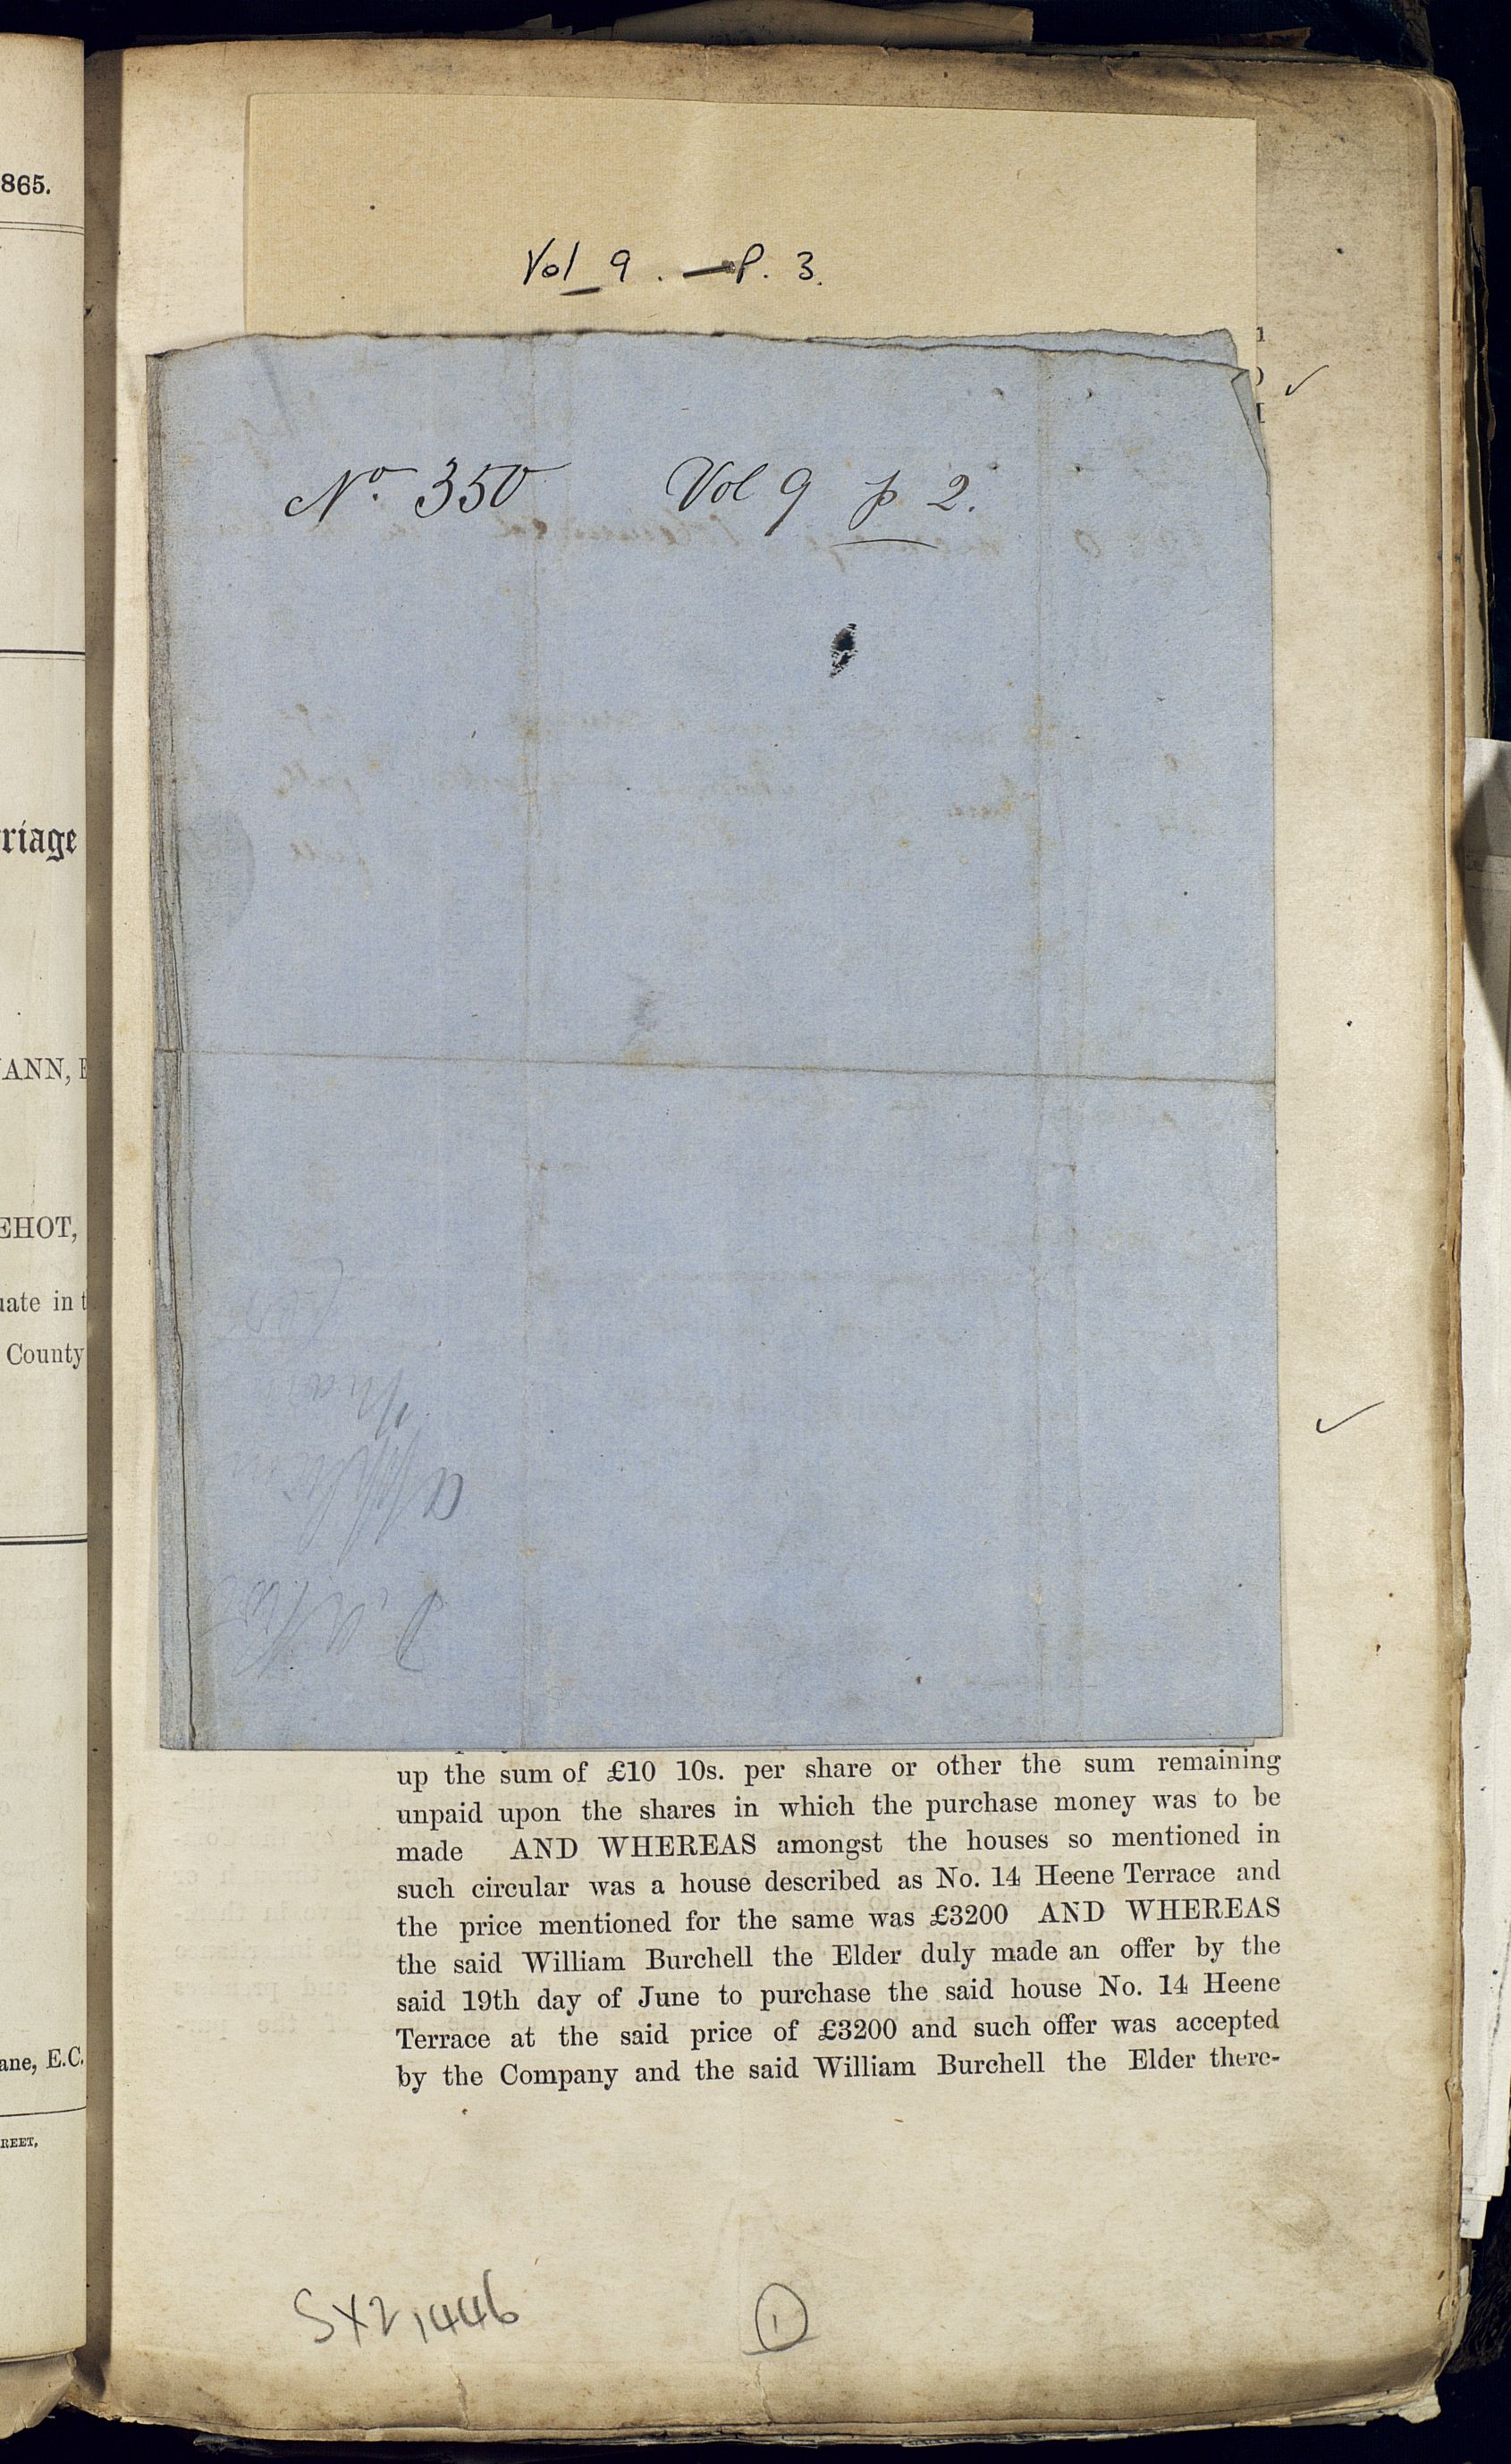 865.
riage
ANN, E
EHOT,
uate in t
County
ane, E.C.
REET,
Vol 9. — P. 3.
No. 350 Vol 9 p 2.
up the sum of £10 10s. per share or other the sum remaining
unpaid upon the shares in which the purchase money was to be
made AND WHEREAS amongst the houses so mentioned in
such circular was a house described as No. 14 Heene Terrace and
the price mentioned for the same was £3200 AND WHEREAS
the said William Burchell the Elder duly made an offer by the
said 19th day of June to purchase the said house No. 14 Heene
Terrace at the said price of £3200 and such offer was accepted
by the Company and the said William Burchell the Elder there-
SX21446
1